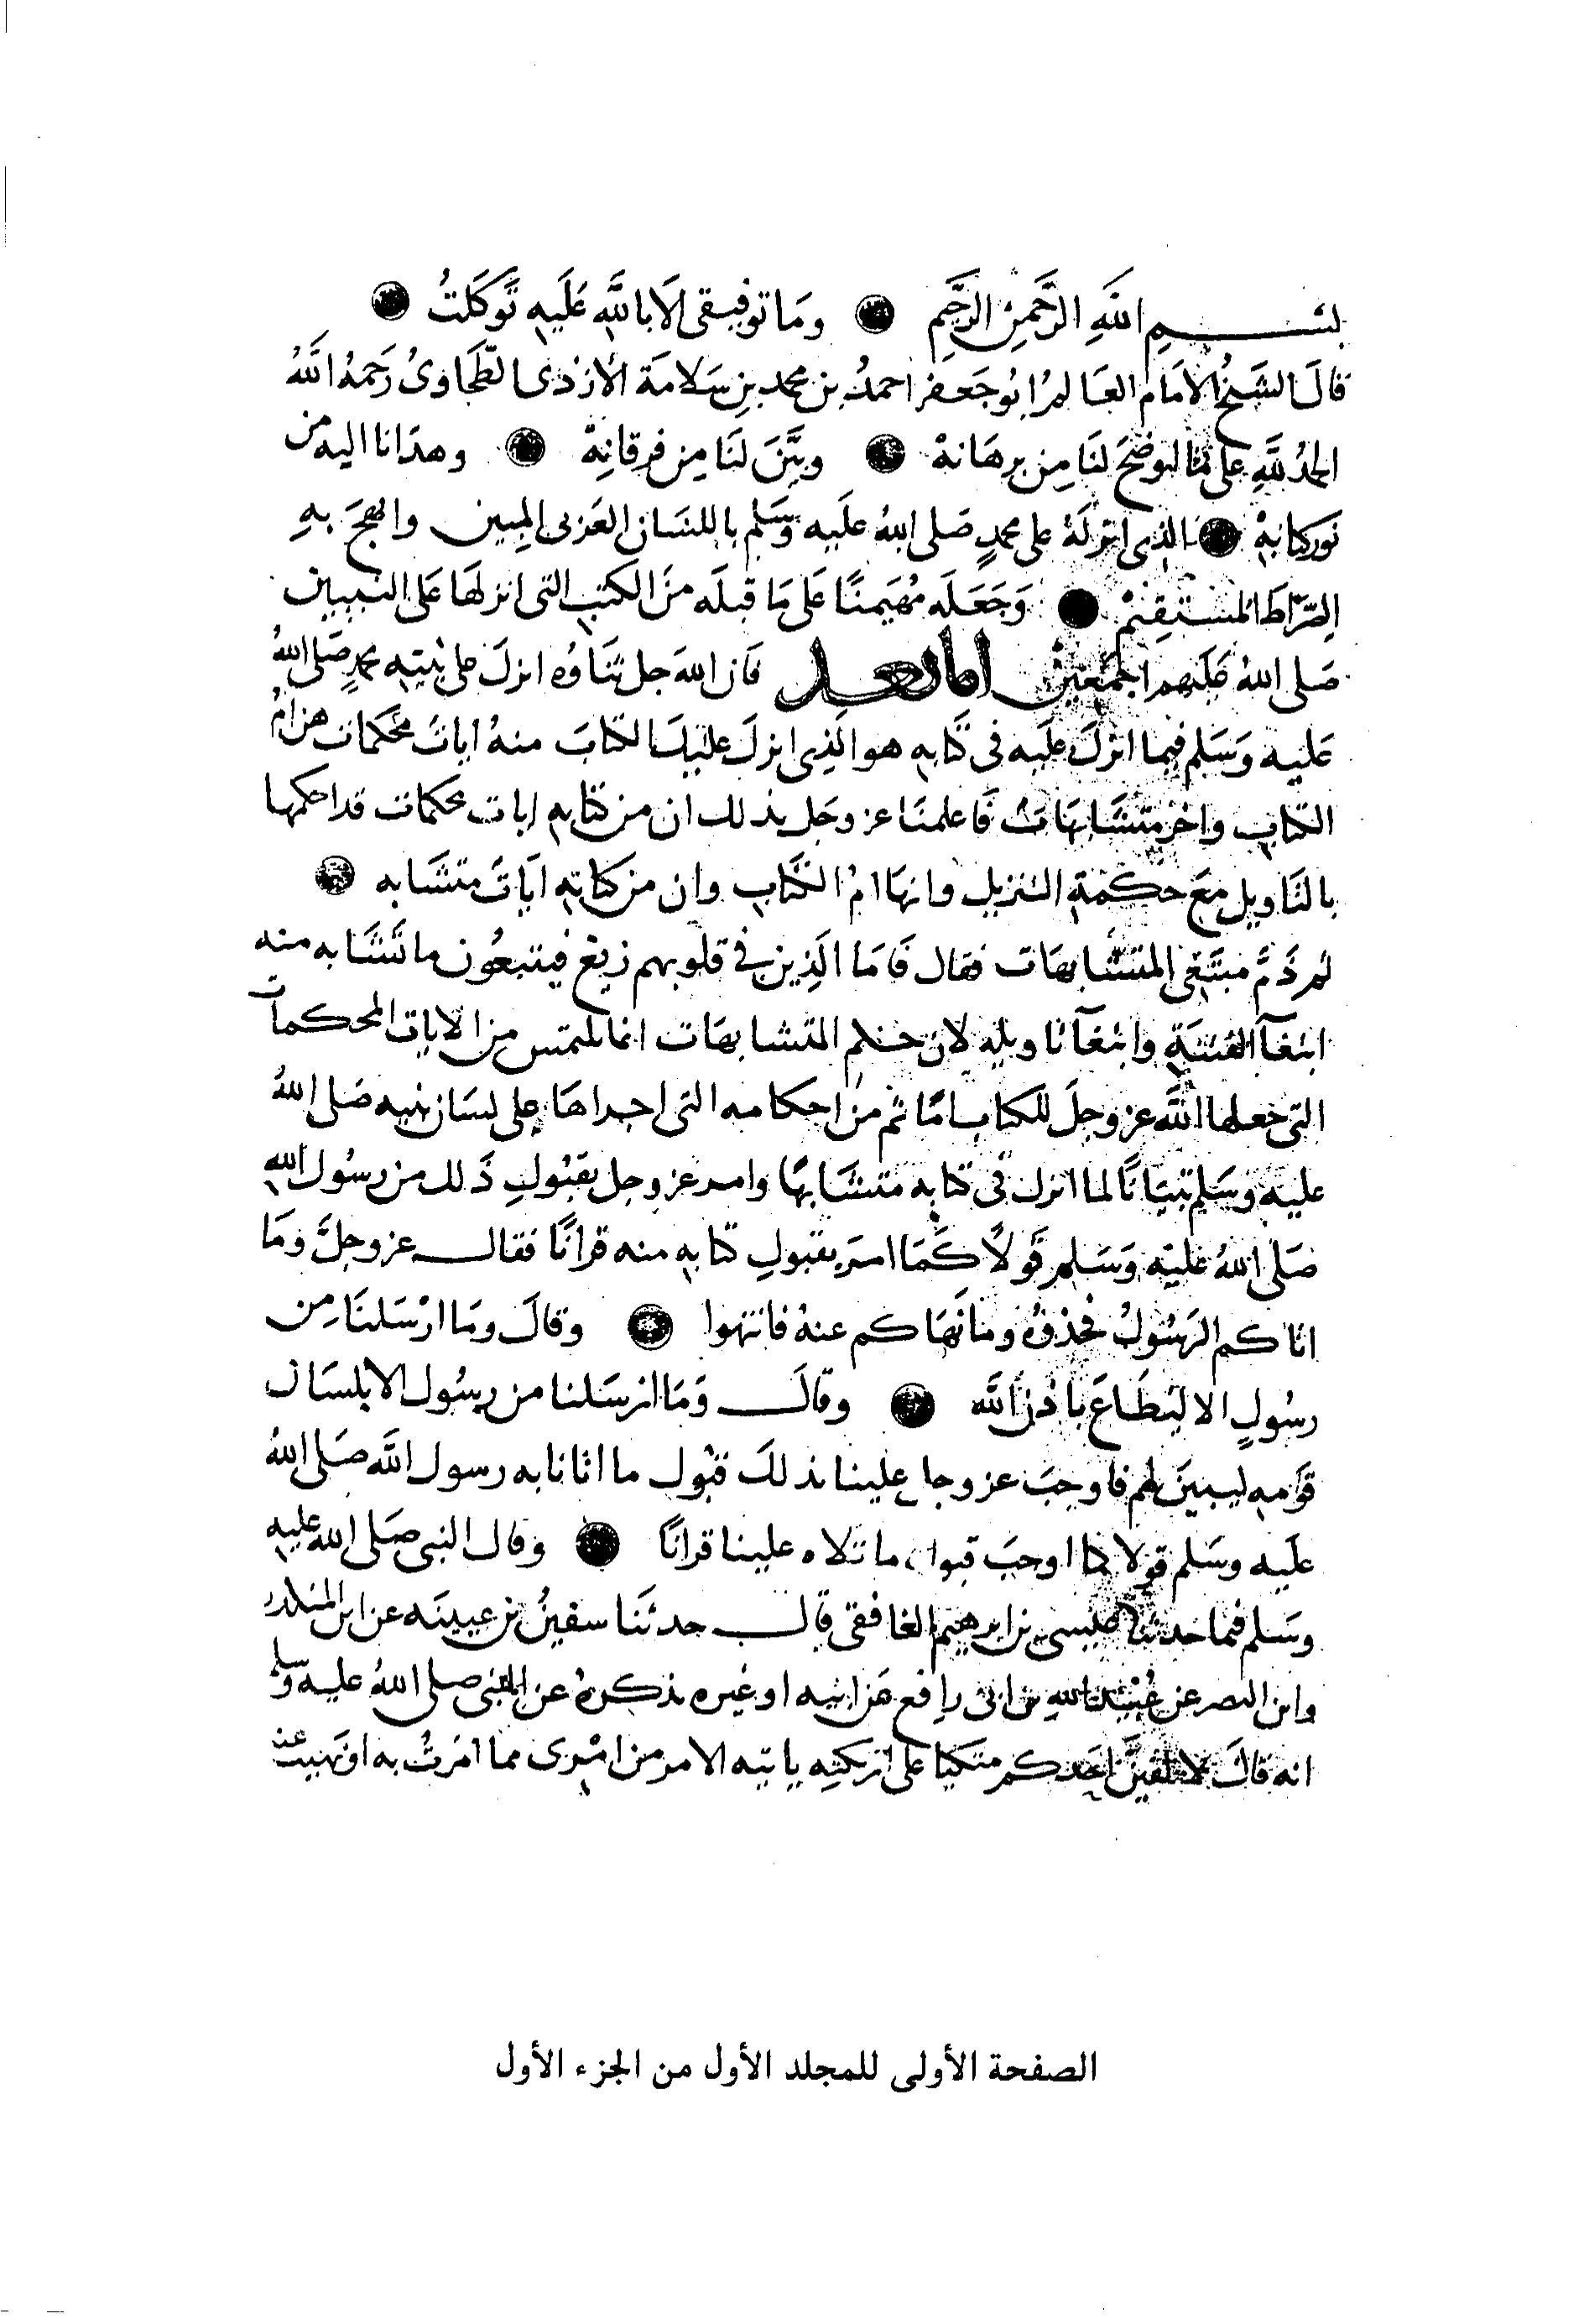 بسم الله الرحمن الرحيم وما توفيقى الا بالله عليه توكلت
قال الشيخ الامام العالم ابو جعفر احمد بن محمد بن سلامة الأزدى الطحاوى رحمه الله
الحمد لله على ما اوضح لنا من برهانه وبين لنا من فرقانه وهدانا اليه من
نور كتابه الذى انزله على محمد صلى الله عليه وسلم باللسان العربى المبين والنهج به
الصراط المستقيم وجعله مهيمنا على ما قبله من الكتب التى انزلها على النبيين
صلى الله عليهم اجمعين اما بعد فان الله جل ثناؤه انزل على نبيه محمد صلى الله
عليه وسلم فيما انزل عليه فى كتابه هو الذى انزل عليك الكتاب منه ايات محكمات هن ام
الكتاب واخر متشابهات فاعلمنا عز وجل بذلك ان من كتابه ايات محكمات قد احكمها
بالتاويل مع حكمة التنزيل وانها ام الكتاب وان من كتابه ايات متشابه
ثم ذم مبتغى المتشابهات فقال فاما الذين فى قلوبهم زيغ فيتبعون ما تشابه منه
ابتغآ الفتنة وابتغآ تاويله لان حكم المتشابهات انما يلتمس من الايات المحكمات
التى جعلها الله عز وجل للكتاب اما ثم من احكامه التى اجراها على لسان نبيه صلى الله
عليه وسلم تبيانا لما انزل فى كتابه متشابها وامر عز وجل بقبول ذلك من رسول الله
صلى الله عليه وسلم قولا كما امر بقبول كتابه منه قرانا فقال عز وجل وما
اتاكم الرسول فخذوه وما نهاكم عنه فانتهوا وقال وما ارسلنا من
رسول الا ليطاع باذن الله وقال وما ارسلنا من رسول الا بلسان
قومه ليبين لهم فاوجب عز وجل علينا بذلك قبول ما اتانا به رسول الله صلى الله
عليه وسلم قولا كما اوجب قبول ما تلاه علينا قرانا وقال النبى صلى الله عليه
وسلم فيما حدثنا عيسى بن ابرهيم الغافقى قال حدثنا سفين بن عيينه عن ابن المنكدر
وابن النصر عن عبيد الله بن ابى رافع عن ابيه او غيره يذكره عن النبى صلى الله عليه وسلم
انه قال لا الفين احدكم متكيا على اريكته ياتيه الامر من امرى مما امرت به او نهيت عنه
الصفحة الأولى للمجلد الأول من الجزء الأول